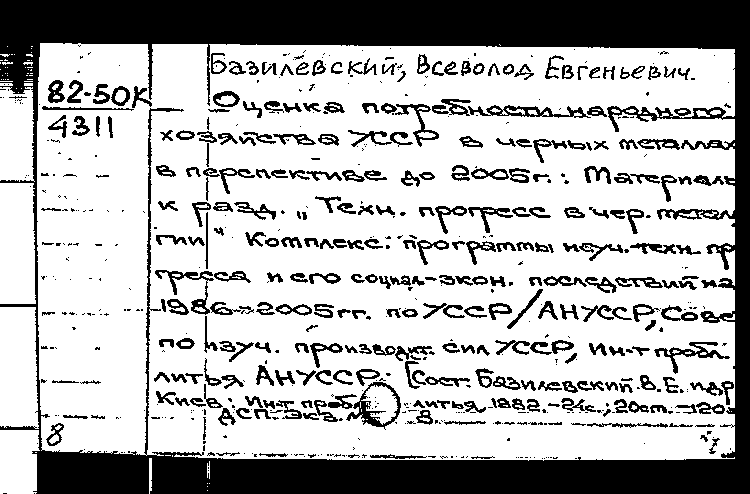 Базилевский, Всеволод Евгеньевич.
82-5OK
4311
Оценка потребности народного
хозяйства УССР в черных металлах
в перспективе до 2005г.: Материалы
к разд. „Техн. прогресс в чер. метал
гии" Комплекс. программы науч.-техн. пр
гресса и его социал-экон. последствий на
1986-2005гг. по УССР/АНУССР, Сове
по изуч. производит. сил УССР, Ин-т пробл.
литья АНУССР; [Сост. Базилевский В.Е. идр
Киев: Ин-т пробл. литья, 1982.-24с.; 20см.-120
ДСП. Экз. 3.
8